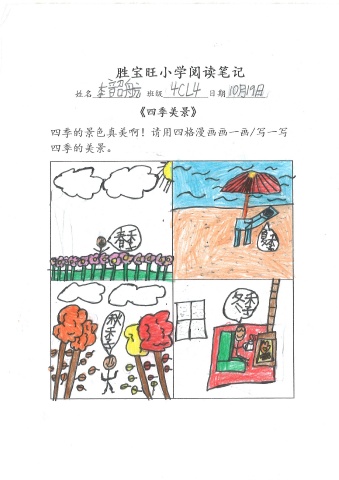 胜宝旺小学阅读笔记
姓名 李韶航 班级 4CL4 日期 10月19日
《四季美景》
四季的景色真美啊！请用四格漫画画一画/写一写
四季的美景。
春季
夏季
秋季
冬季